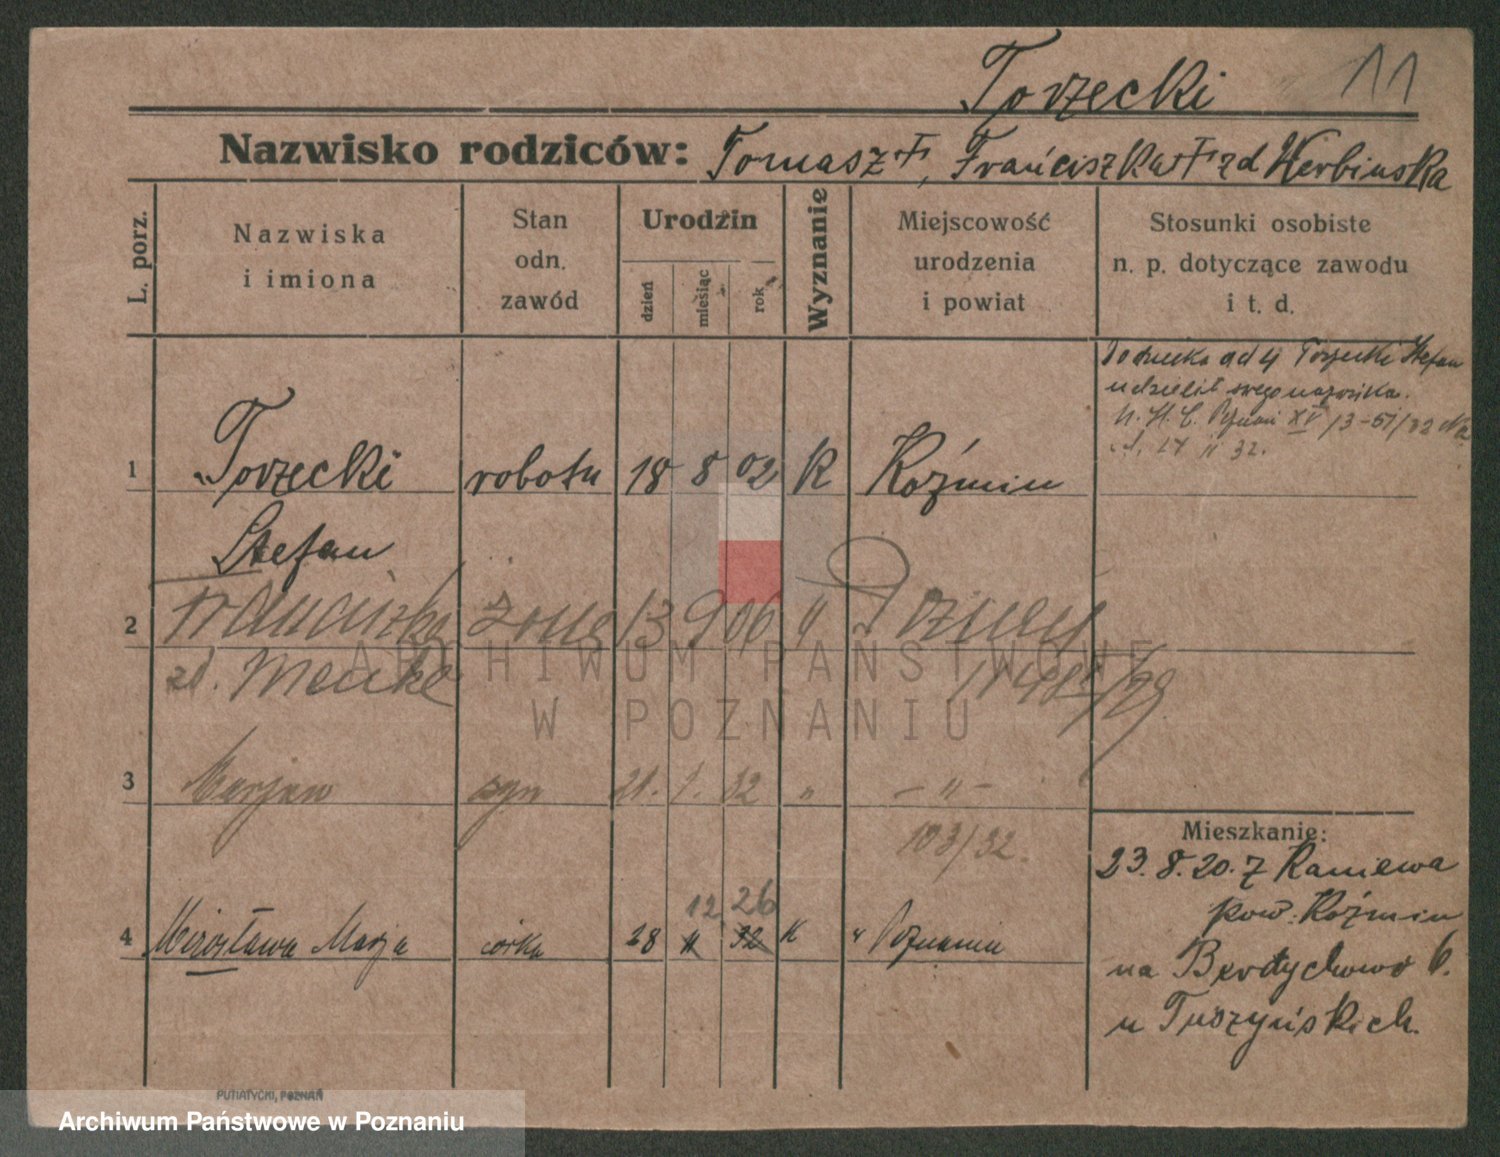 Torzecki 11
Nazwisko rodziców: Tomasz +, Franciszka + zd Herbinska
L. porz.
Nazwiska
i imiona
Stan
odn.
zawód
Urodzin
dzień
miesiąc
rok
Wyznanie
Miejscowość
urodzenia
i powiat
Stosunki osobiste
n. p. dotyczące zawodu
i t. d.
1 Torzecki robotn 18 8 02 K Koźmin
Stefan
2 Franciszka żona 13 9 06 " Poznań
zd. Menke
3 Marjan syn 21. 1. 32 " - " -
103/32.
12 26
4 Mirosława Marja córka 28 11 32 K " Poznania
Dodziecka od 4 Torzecki Stefan
udzielił swego nazwiska.
Mieszkanie:
23. 8. 20. z Raniewa
pow. Koźmin
na Berdychowo 6.
u Tuszyńskich.
PUTIATYCKI, POZNAŃ
ARCHIWUM PAŃSTWOWE
W POZNANIU
Archiwum Państwowe w Poznaniu